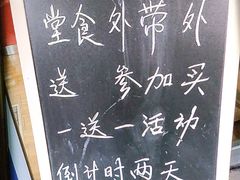 堂食外带外
送 参加买
一送一活动
倒计时两天